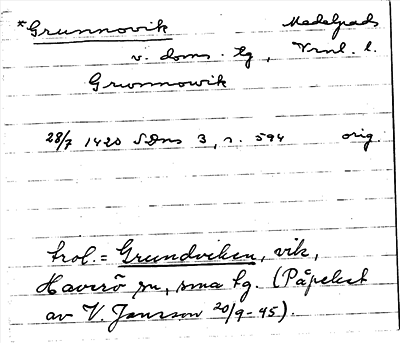 *Grunnovik Medelpads
v. doms. tg, Vrnl. l.
Grwnnowik
28/7 1420 SDns 3, s. 594 orig.
trol. = Grundviken, vik,
Haverö sn, sma tg. (Påpekat
av V. Jansson 20/9-45).